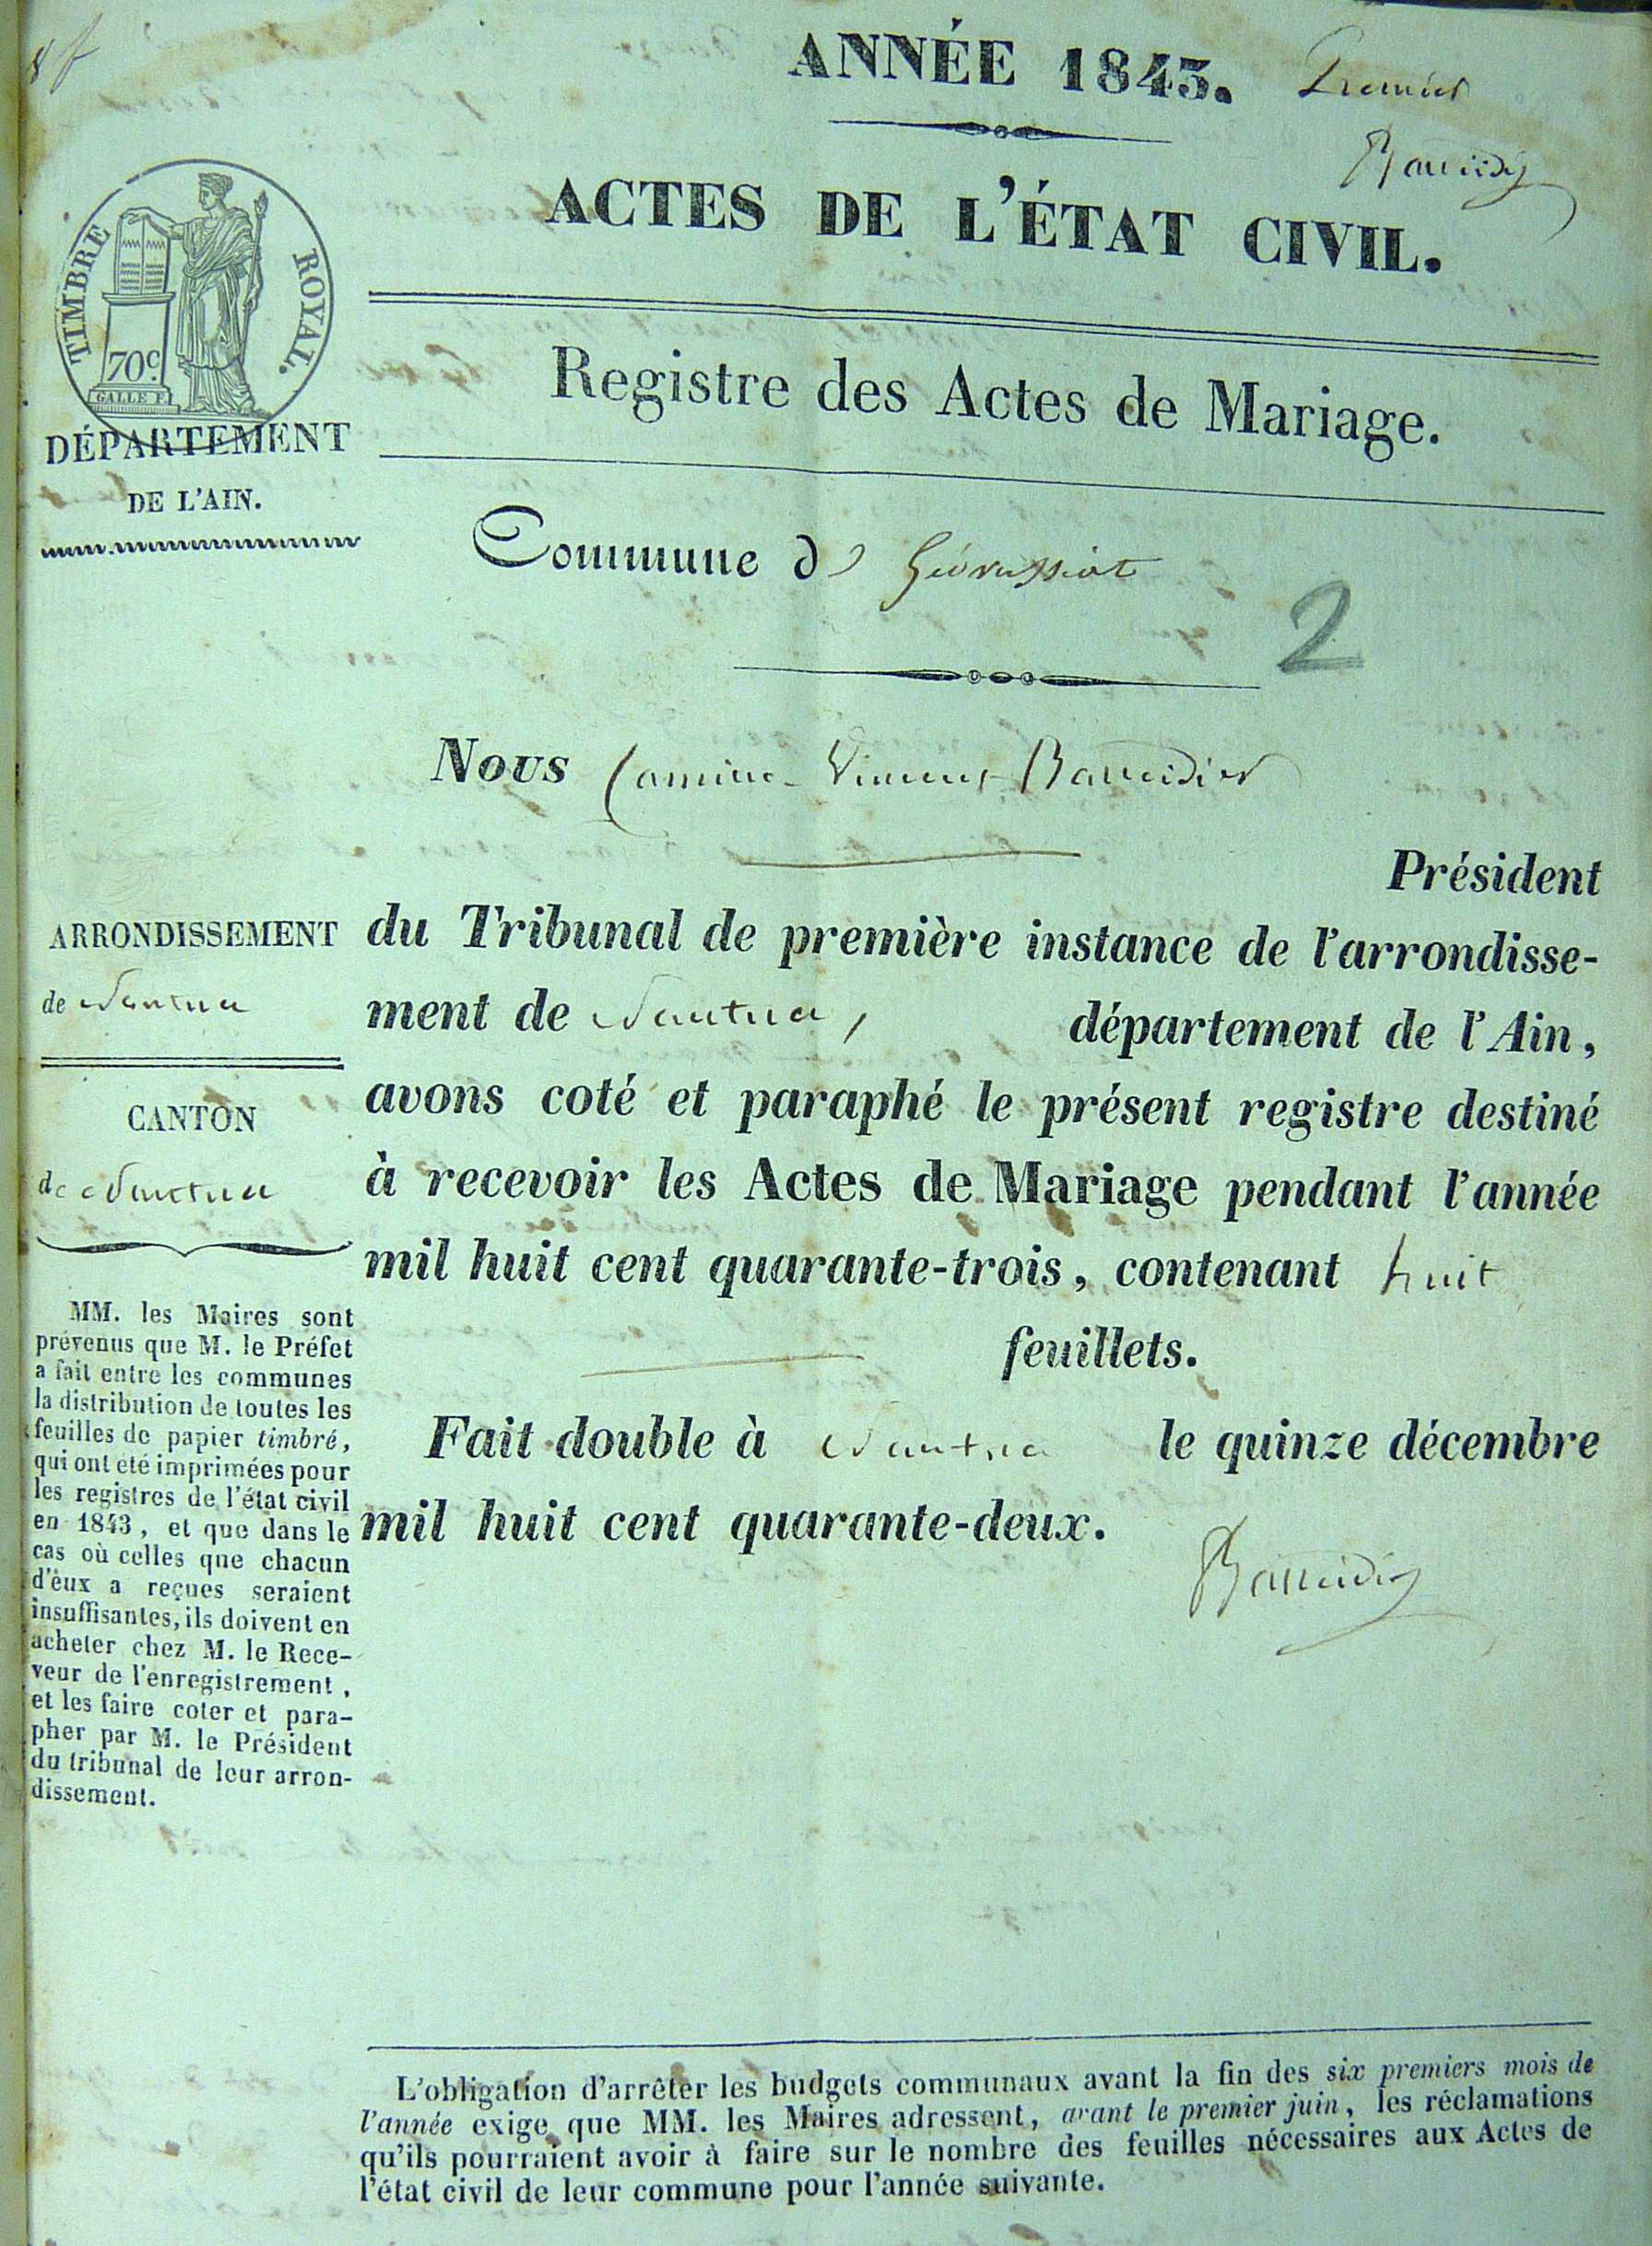 8 f
ANNÉE 1843. Premier
Baudier
ACTES DE L'ÉTAT CIVIL.
TIMBRE ROYAL.
70c.
GALLE F.
Registre des Actes de Mariage.
DÉPARTEMENT
DE L'AIN.
Commune de Géovreissiat
2
Nous
Président
ARRONDISSEMENT
de Nantua
CANTON
de Nantua
MM. les Maires sont
prévenus que M. le Préfet
a fait entre les communes
la distribution de toutes les
feuilles de papier timbré,
qui ont été imprimées pour
les registres de l'état civil
en 1843, et que dans le
cas où celles que chacun
d'eux a reçues seraient
insuffisantes, ils doivent en
acheter chez M. le Rece-
veur de l'enregistrement,
et les faire coter et para-
pher par M. le Président
du tribunal de leur arron-
dissement.
du Tribunal de première instance de l'arrondisse-
ment de Nantua, département de l'Ain,
avons coté et paraphé le présent registre destiné
à recevoir les Actes de Mariage pendant l'année
mil huit cent quarante-trois, contenant huit
feuillets.
Fait double à Nantua le quinze décembre
mil huit cent quarante-deux.
L'obligation d'arrêter les budgets communaux avant la fin des six premiers mois de
l'année exige que MM. les Maires adressent, avant le premier juin, les réclamations
qu'ils pourraient avoir à faire sur le nombre des feuilles nécessaires aux Actes de
l'état civil de leur commune pour l'année suivante.